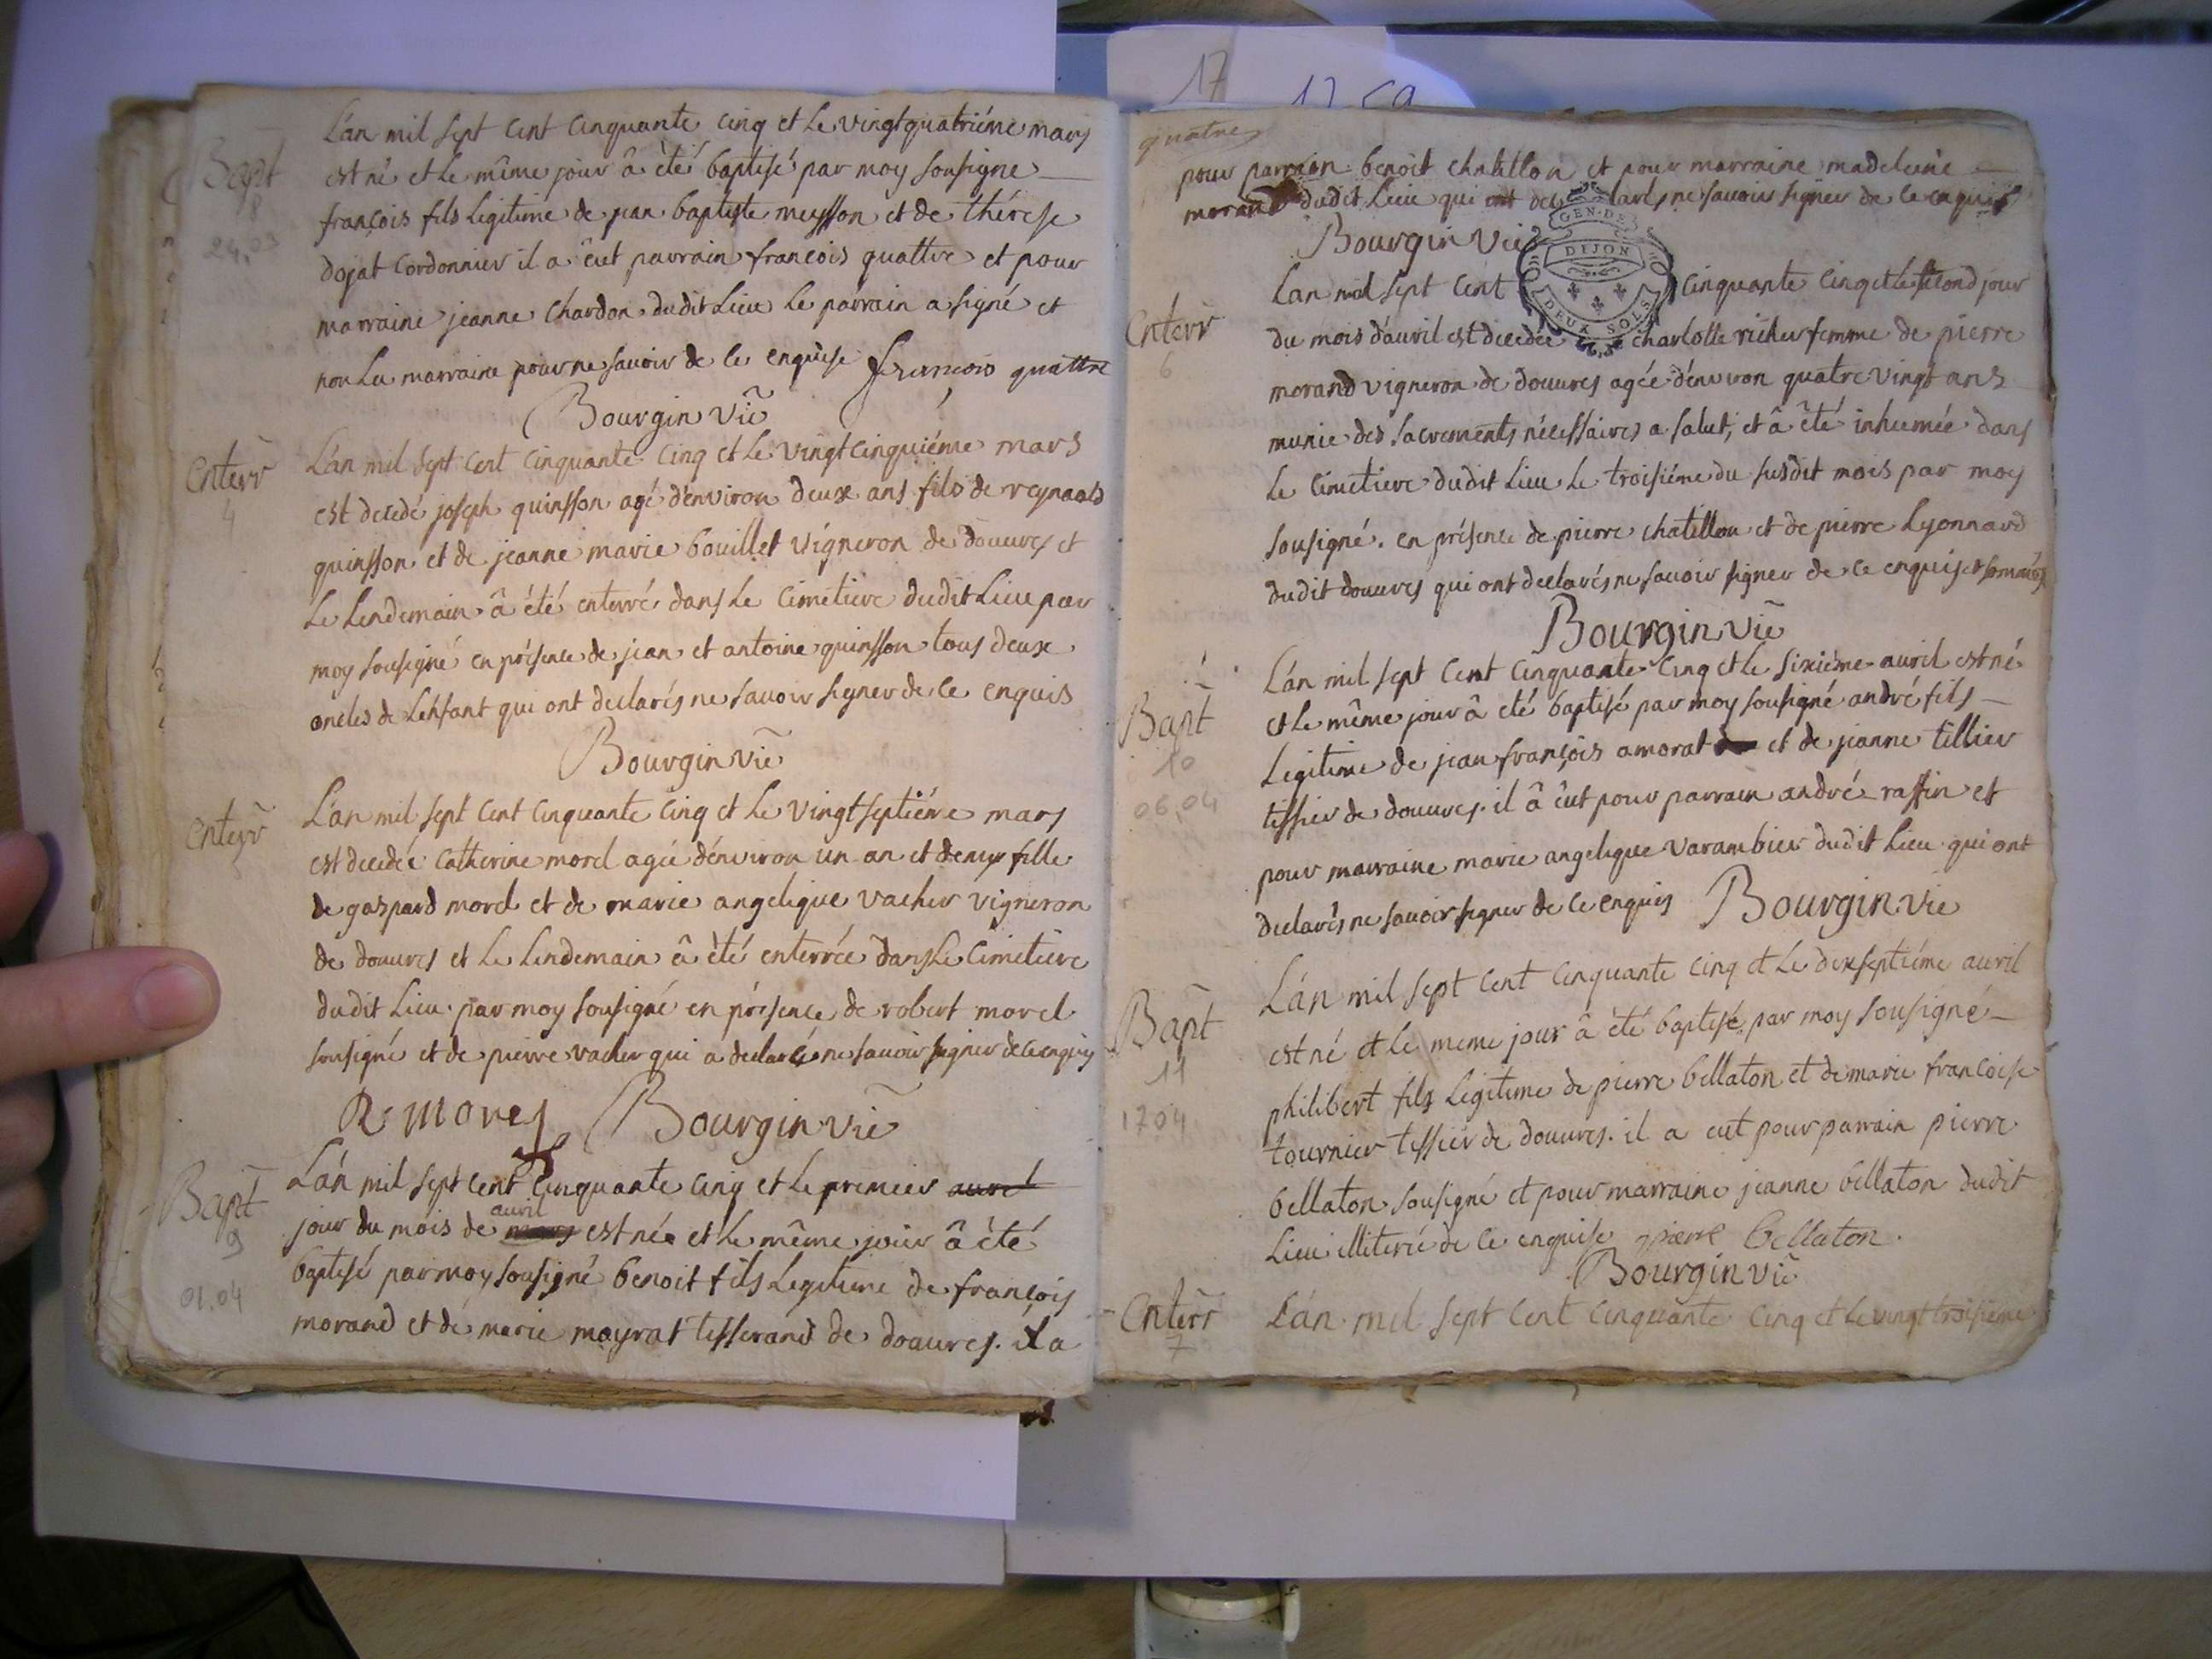 L'an mil sept cent cinquante cinq et le vingtquatriéme mars
Bapt
8
24,03
est né et le même jour â èté baptisé par moy sousigné
françois fils legitime de jean baptiste meysson et de thérese
dojat cordonnier il a êut parrain françois quattre et pour
marraine jeanne chardon dudit Lieu le parrain a signé et
non La marraine pour ne savoir de ce enquise françois quattre
Bourgin vic̃
Enterr̃
4
L'an mil sept cent cinquante cinq et le vingtcinquiéme mars
est decedé joseph quinsson agé d'environ deux ans fils de reynauld
quinsson et de jeanne marie bouillet vigneron de douvres et
le lendemain â été enterré dans le cimetiere dudit Lieu par
moy sousigné en présence de jean et antoine quinsson tous deux
oncles de l'enfant qui ont declarés ne savoir signer de ce enquis
Bourgin vic̃
Enterr̃
5
L'an mil sept cent cinquante cinq et le vingtseptiéme mars
est decedée catherine morel agée d'environ un an et demy fille
de gaspard morel et de marie angelique vacher vigneron
de douvres et le lendemain â èté enterrée dans le cimetiere
dudit Lieu par moy sousigné en présence de robert morel
sousigné et de pierre vacher qui a declaré ne savoir signer de ce enquis
R morel Bourgin vic̃
Bapt̃
9
01.04
L'an mil sept cent cinquante cinq et le premier avril
avril
jour du mois de mars est née et le même jour â èté
baptisé par moy sousigné benoit fils legitime de françois
morand et de marie mayrat tisserand de douvres. il a
17
quatre
pour parrain benoit chatillon et pour marraine madeleine
morand dudit Lieu qui ont declarés ne savoir signer de ce enquis
Bourgin vic̃
GEN. DE
DIJON
DEUX SOLS
Enterr̃
6
L'an mil sept cent cinquante cinq et le second jour
du mois d'avril est decedée charlotte richer femme de pierre
morand vigneron de douvres agée d'environ quatre vingt ans
munie des sacrements nécessaires a salut, et â èté inhumée dans
le cimetiere dudit Lieu le troisiéme du susdit mois par moy
sousigné. en présence de pierre chatillon et de pierre Lyonnard
dudit douvres qui ont declarés ne savoir signer de ce enquis et sommés
Bourgin vic̃
Bapt̃
10
06,04
L'an mil sept cent cinquante cinq et le sixiéme avril est né
et le même jour â eté baptisé par moy sousigné andré fils
legitime de jean françois amorat et de jeanne tillier
tissier de douvres. il â êut pour parrain andré raffin et
pour marraine marie angelique varambier dudit Lieu qui ont
declarés ne savoir signer de ce enquis Bourgin vic
Bapt̃
11
17 04
L'an mil sept cent cinquante cinq et le dixseptiéme avril
est né et le meme jour â èté baptisé par moy sousigné
philibert fils legitime de pierre bellaton et de marie françoise
tournier tissier de douvres. il a eut pour parrain pierre
bellaton sousigné et pour marraine jeanne bellaton dudit
Lieu illiterée de ce enquise pierre bellaton.
Bourgin vic̃
Enterr̃
7
L'an mil sept cent cinquante cinq et le vingttroisiéme